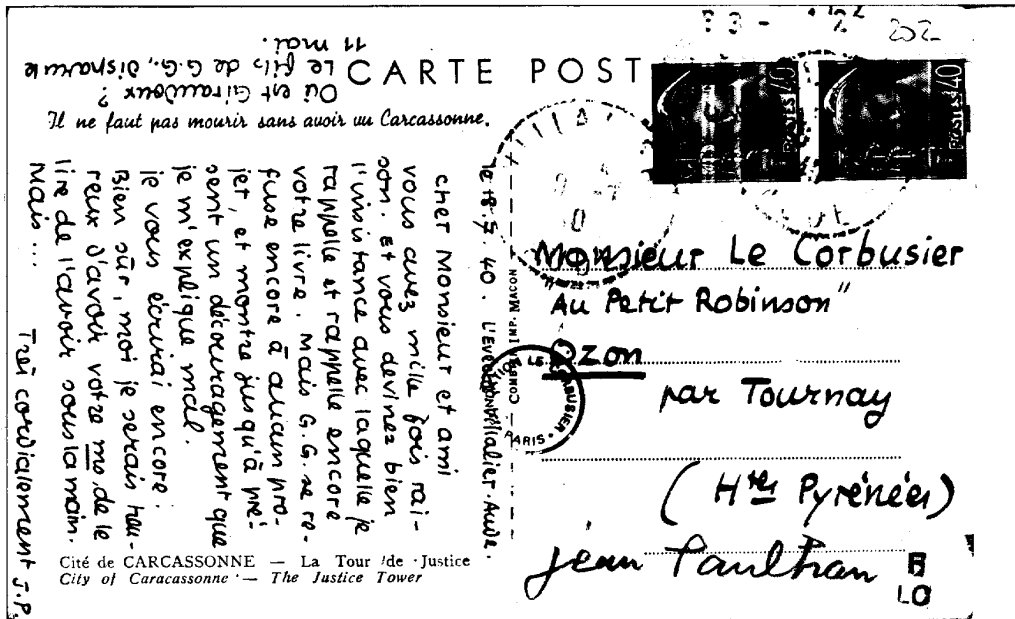 11 mai.
Le fils de G.G., disparu le
Où est Giraudoux ?
CARTE POST
Il ne faut pas mourir sans avoir vu Carcassonne.
le 18.7.40. L'Evêché Villalier. Aude.
cher Monsieur et ami
vous avez mille fois rai-
son. Et vous devinez bien
l'insistance avec laquelle je
rappelle et rappelle encore
votre livre. Mais G.G. se re-
fuse encore à aucun pro-
jet, et montre jusqu'à pré-
sent un découragement que
je m'explique mal.
je vous écrirai encore :
Bien sûr, moi je serais heu-
reux d'avoir votre ms de le
lire de l'avoir sous la main.
Mais...
Très cordialement J.P.
Cité de CARCASSONNE — La Tour de Justice
City of Caracassonne — The Justice Tower
COMBIER IMP. MACON
202
POSTES 40
POSTES 40
Monsieur Le Corbusier
Au Petit Robinson"
Ozon
par Tournay
(Htes Pyrénées)
Jean Paulhan
LE CORBUSIER
PARIS